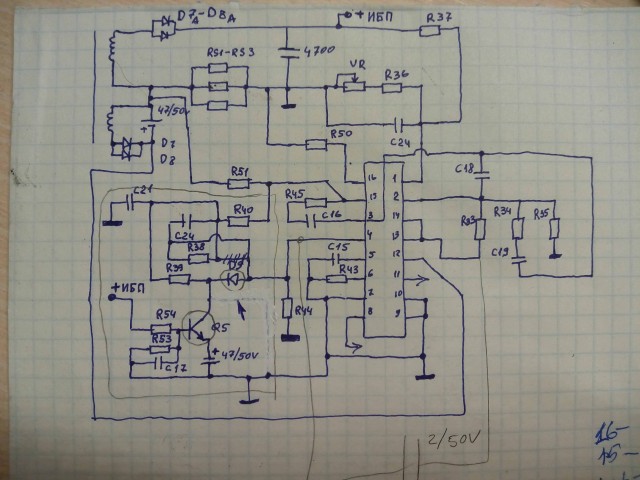 D7A-D8A
+ИБП
R37
R51-R53
4700
VR
R36
47/50v
+
C24
D7
D8
R50
R51
C21
R45
16
1
C18
15
2
C16
3
14
R40
C24
R33
R34
R35
4
13
R38
C15
5
12
D9
R39
R43
6
11
C19
+ИБП
7
10
R44
R54
Q5
8
9
R53
C17
+
47/50V
2/50V
16-
15-